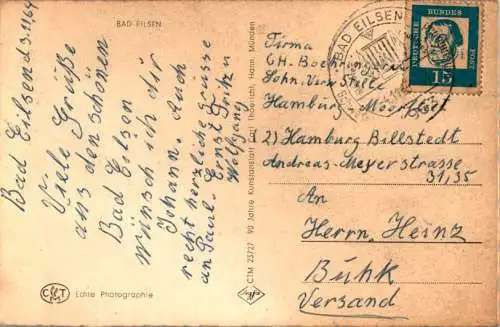 BAD EILSEN
Bad Eilsen d. 3. 1164
Viele Grüße
aus den schönen
Bad Eilsen
wünsch ich dir
Johann. Auch
recht herzliche Grüsse
an Paul. Ernst Fritz u
Wolfgang
Echte Photographie
C&T
CTM 23727 90 Jahre Kunstanstalt Carl Thoericht, Hann. Münden
BAD EILSEN
DEUTSCHE BUNDES POST
15
Firma
CH.
John. Ver Stelle
Hamburg Moorfleet
2) Hamburg Billstedt
Andreas-Meyerstrasse
31, 35
An
Herrn Heinz
Bühk
Versand